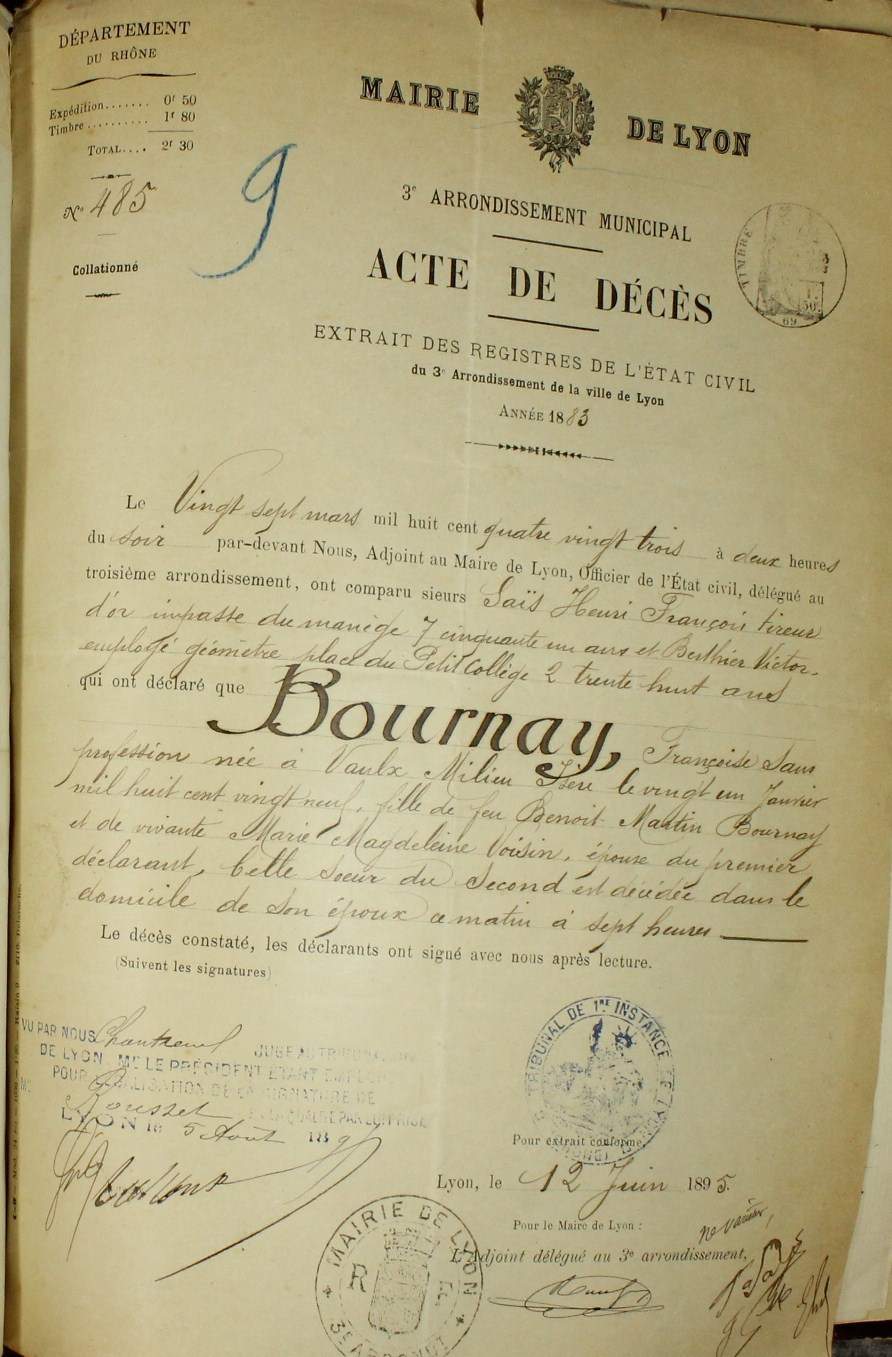 DÉPARTEMENT
DU RHÔNE
Expédition....... 0f 50
Timbre.......... 1f 80
TOTAL.... 2f 30
No 485
Collationné
9
MAIRIE DE LYON
3e ARRONDISSEMENT MUNICIPAL
ACTE DE DÉCÈS
TIMBRE
EXTRAIT DES REGISTRES DE L'ÉTAT CIVIL
du 3e Arrondissement de la ville de Lyon
ANNÉE 1883
Le Vingt sept mars mil huit cent quatre vingt trois à deux heures
du soir par-devant Nous, Adjoint au Maire de Lyon, Officier de l'État civil, délégué au
troisième arrondissement, ont comparu sieurs Saïs Henri François tireur
d'or impasse du manège 7 cinquante un ans et Berthier Victor
employé géomètre place du Petit Collège 2 trente huit ans
qui ont déclaré que Bournay, Françoise Sans
profession née à Vaulx Milieu Isère le vingt un Janvier
mil huit cent vingt neuf, fille de feu Benoit Martin Bournay
et de vivante Marie Magdeleine Voisin, épouse du premier
déclarant, belle soeur du Second est décédée dans le
domicile de son époux ce matin à sept heures
Le décès constaté, les déclarants ont signé avec nous après lecture.
(Suivent les signatures)
VU PAR NOUS
DE LYON ME LE PRÉSIDENT ÉTANT
POUR LÉGALISATION DE LA SIGNATURE DE
Rousset
LYON le 5 Août 189
TRIBUNAL DE 1RE INSTANCE DE LYON
Pour extrait conforme,
Lyon, le 12 Juin 1895.
Pour le Maire de Lyon :
L'Adjoint délégué au 3e arrondissement,
MAIRIE DE LYON
R F
3e ARRONDT